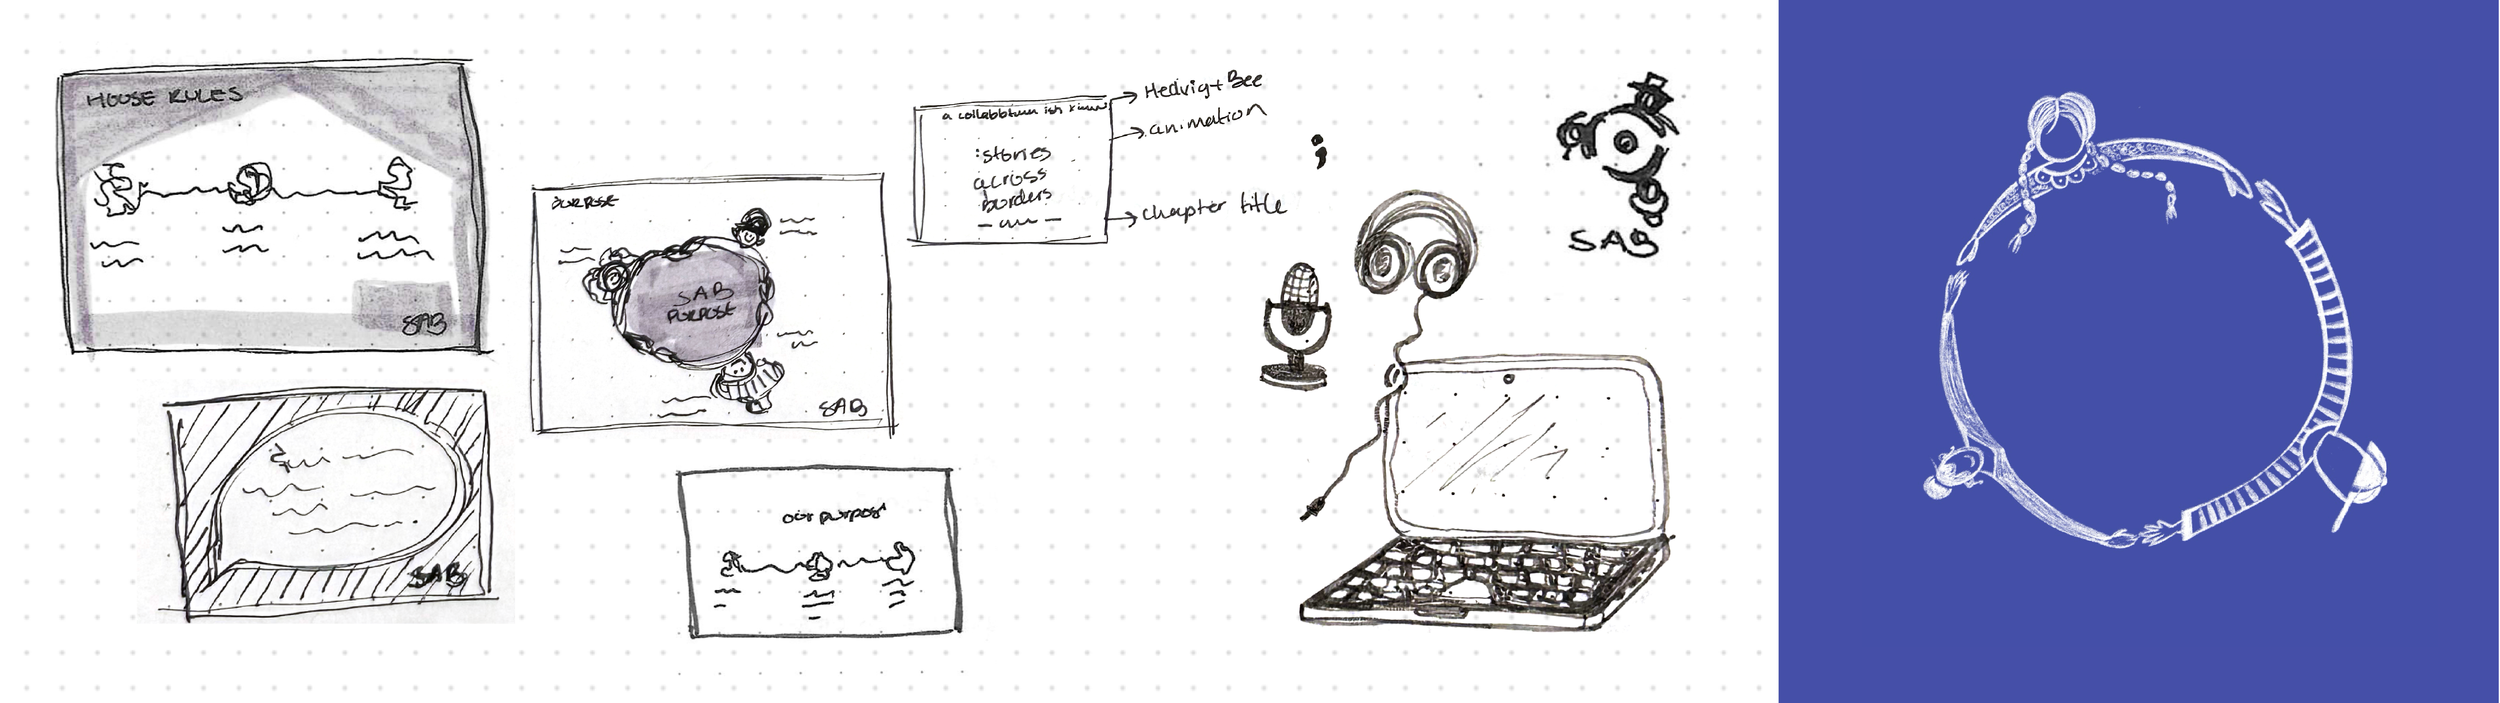 HOUSE RULES
SAB
PURPOSE
SAB
PURPOSE
SAB
a collab
:stories
across
borders
Hedvig + Bee
animation
chapter title
;
SAB
SAB
our purpose